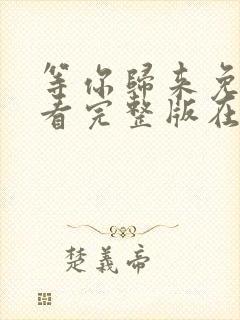 等你歸来免
看完整版在
楚義帝